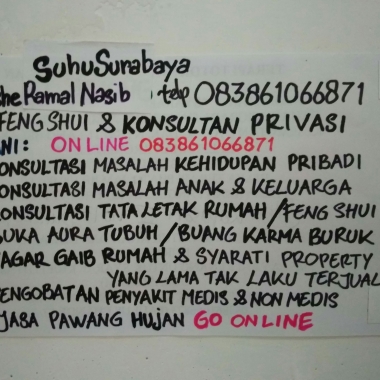 SuhuSurabaya
he Ramal Nasib tdp 083861066871
FENG SHUI & KONSULTAN PRIVASI
NI: ONLINE 083861066871
ONSULTASI MASALAH KEHIDUPAN PRIBADI
ONSULTASI MASALAH ANAK & KELUARGA
ONSULTASI TATA LETAK RUMAH / FENG SHUI
UKA AURA TUBUH / BUANG KARMA BURUK
AGAR GAIB RUMAH & SYARATI PROPERTY
YANG LAMA TAK LAKU TERJUAL
PENGOBATAN PENYAKIT MEDIS & NON MEDIS
JASA PAWANG HUJAN GO ONLINE